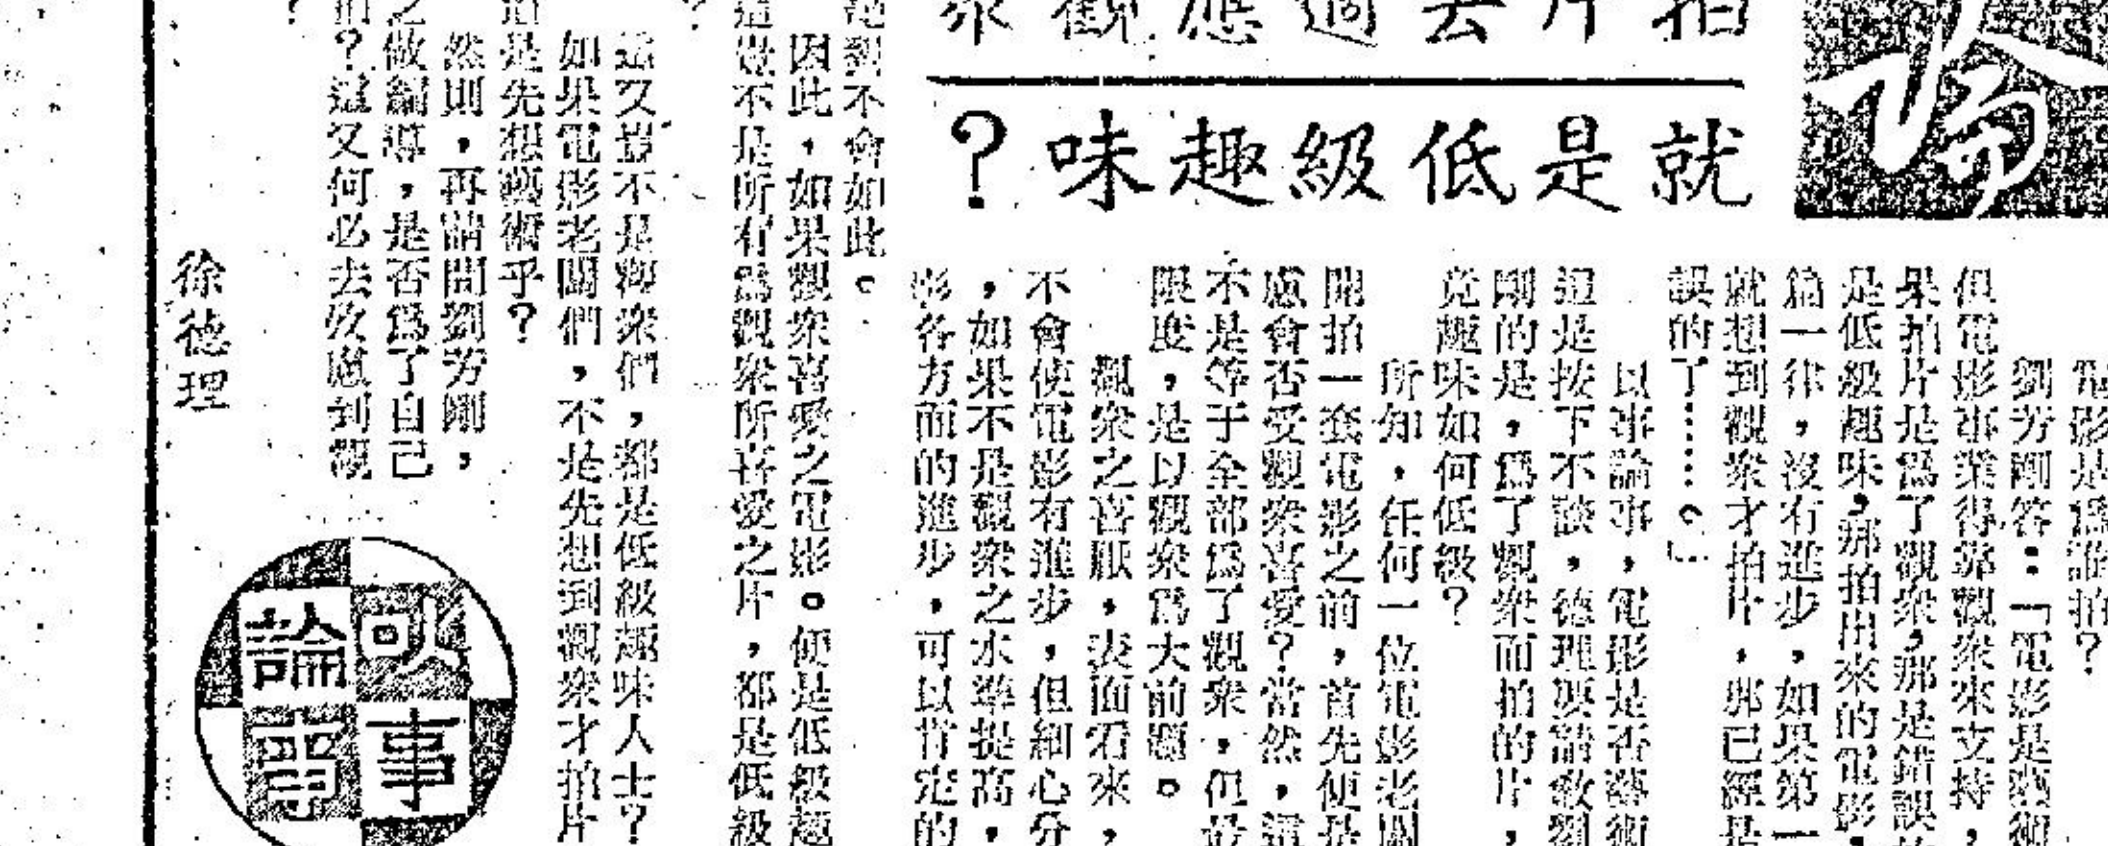 拍片去適應觀眾
就是低級趣味？
電影是爲誰拍？
劉芳剛答：「電影是藝術
但電影事業得靠觀衆來支持，
果拍片是爲了觀衆，那是錯誤
是低級趣味，那拍出來的電影，
篇一律，沒有進步，如果第一
就想到觀衆才拍片，那已經是
誤的了……。」
以事論事，電影是否藝術
這是按下不談，德理要請教劉
剛的是，爲了觀衆而拍的片，
竟趣味如何低級？
所知，任何一位電影老闆
開拍一套電影之前，首先便是
慮會否受觀衆喜愛？當然，這
不是等于全部爲了觀衆，但最
限度，是以觀衆爲大前題。
觀衆之喜厭，表面看來，
不會使電影有進步，但細心分
，如果不是觀衆之水準提高，
影各方面的進步，可以肯定的
絕對不會如此。
因此，如果觀衆喜愛之電影。便是低級趣
這豈不是所有爲觀衆所喜愛之片，都是低級
？
這又豈不是海衆們，都是低級趣味人士？
如果電影老闆們，不是先想到觀衆才拍片
道是先想藝術乎？
然則，再請問劉芳剛，
之做編導，是否爲了自己
拍？這又何必去攷慮到觀
？
徐德理
以事論事